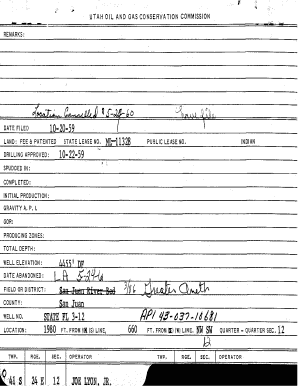 UTAH OIL AND GAS CONSERVATION COMMISSION
REMARKS:
Location Cancelled 5-24-60
DATE FILED 10-20-59
LAND: FEE & PATENTED STATE LEASE NO. ML-1132B PUBLIC LEASE NO. INDIAN
DRILLING APPROVED: 10-22-59
SPUDDED IN:
COMPLETED:
INITIAL PRODUCTION:
GRAVITY A. P. I.
GOR:
PRODUCING ZONES:
TOTAL DEPTH:
WELL ELEVATION: 4455' DF
DATE ABANDONED: LA
FIELD OR DISTRICT: San Juan River Bed 3/86 Greater Aneth
COUNTY: San Juan
WELL NO. STATE FL 3-12 API 43-037-10681
LOCATION: 1980 FT. FROM (S) LINE, 660 FT. FROM (W) LINE. NW SW QUARTER - QUARTER SEC. 12
TWP. RGE. SEC. OPERATOR TWP. RGE. SEC. OPERATOR
41 S 24 E 12 JOE LYON, JR.